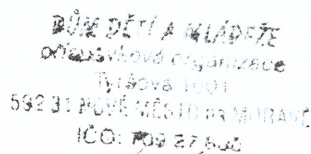 DŮM DĚTÍ A MLÁDEŽE
příspěvková organizace
Tyršova 1001
592 31 NOVÉ MĚSTO NA MORAVĚ
IČO: